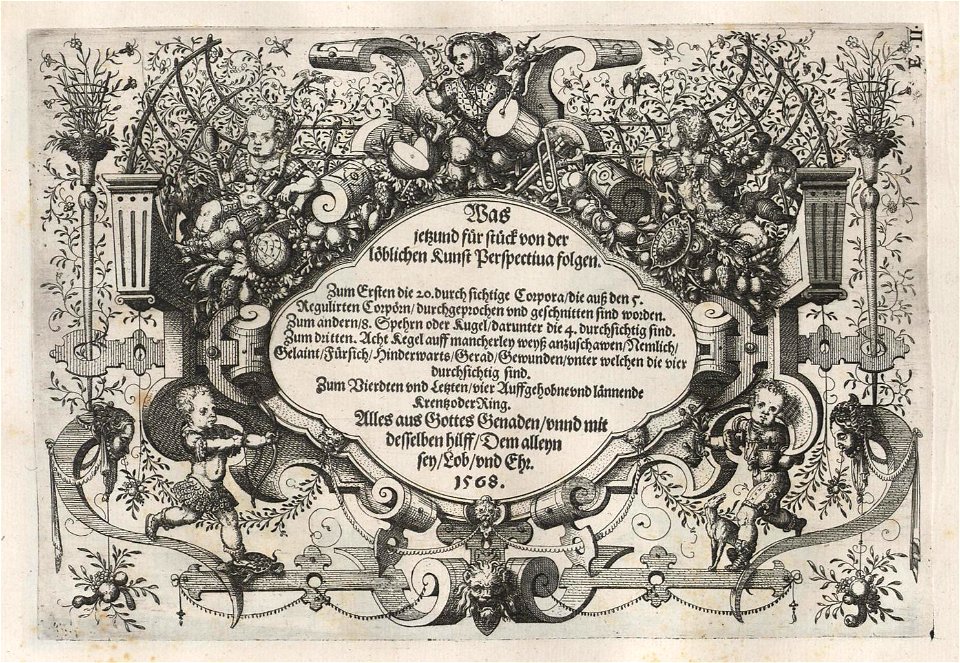 II. E
Was
jetzund für stück von der
löblichen Kunst Perspectiua folgen.
Zum Ersten die 20. durch sichtige Corpora/die auß den 5.
Regulirten Corporn/durchgeprochen vnd geschnitten sind worden.
Zum andern/8. Spehrn oder Kugel/darunter die 4. durchsichtig sind.
Zum dritten. Acht Kegel auff mancherley weyß anzuschawen/Nemlich/
Gelaint/Fürsich/Hinderwarts/Gerad/Gewunden/vnter welchen die vier
durchsichtig sind.
Zum Vierdten vnd Letzten/vier Auffgehobne vnd lännende
Krentz oder Ring.
Alles aus Gottes Genaden/vnnd mit
desselben hilff/Dem alleyn
sey/Lob/vnd Ehr.
1568.